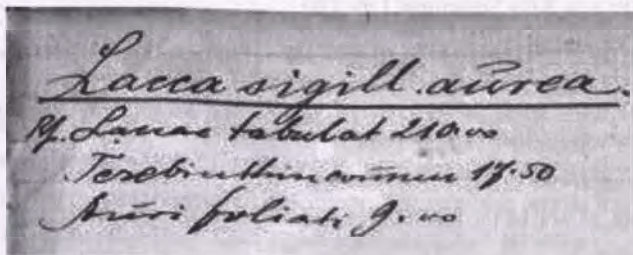 Lacca sigill. aurea.
Rp. Laccae tabulat 210.00
Terebinthin commun 17.50
Auri foliati 9.00